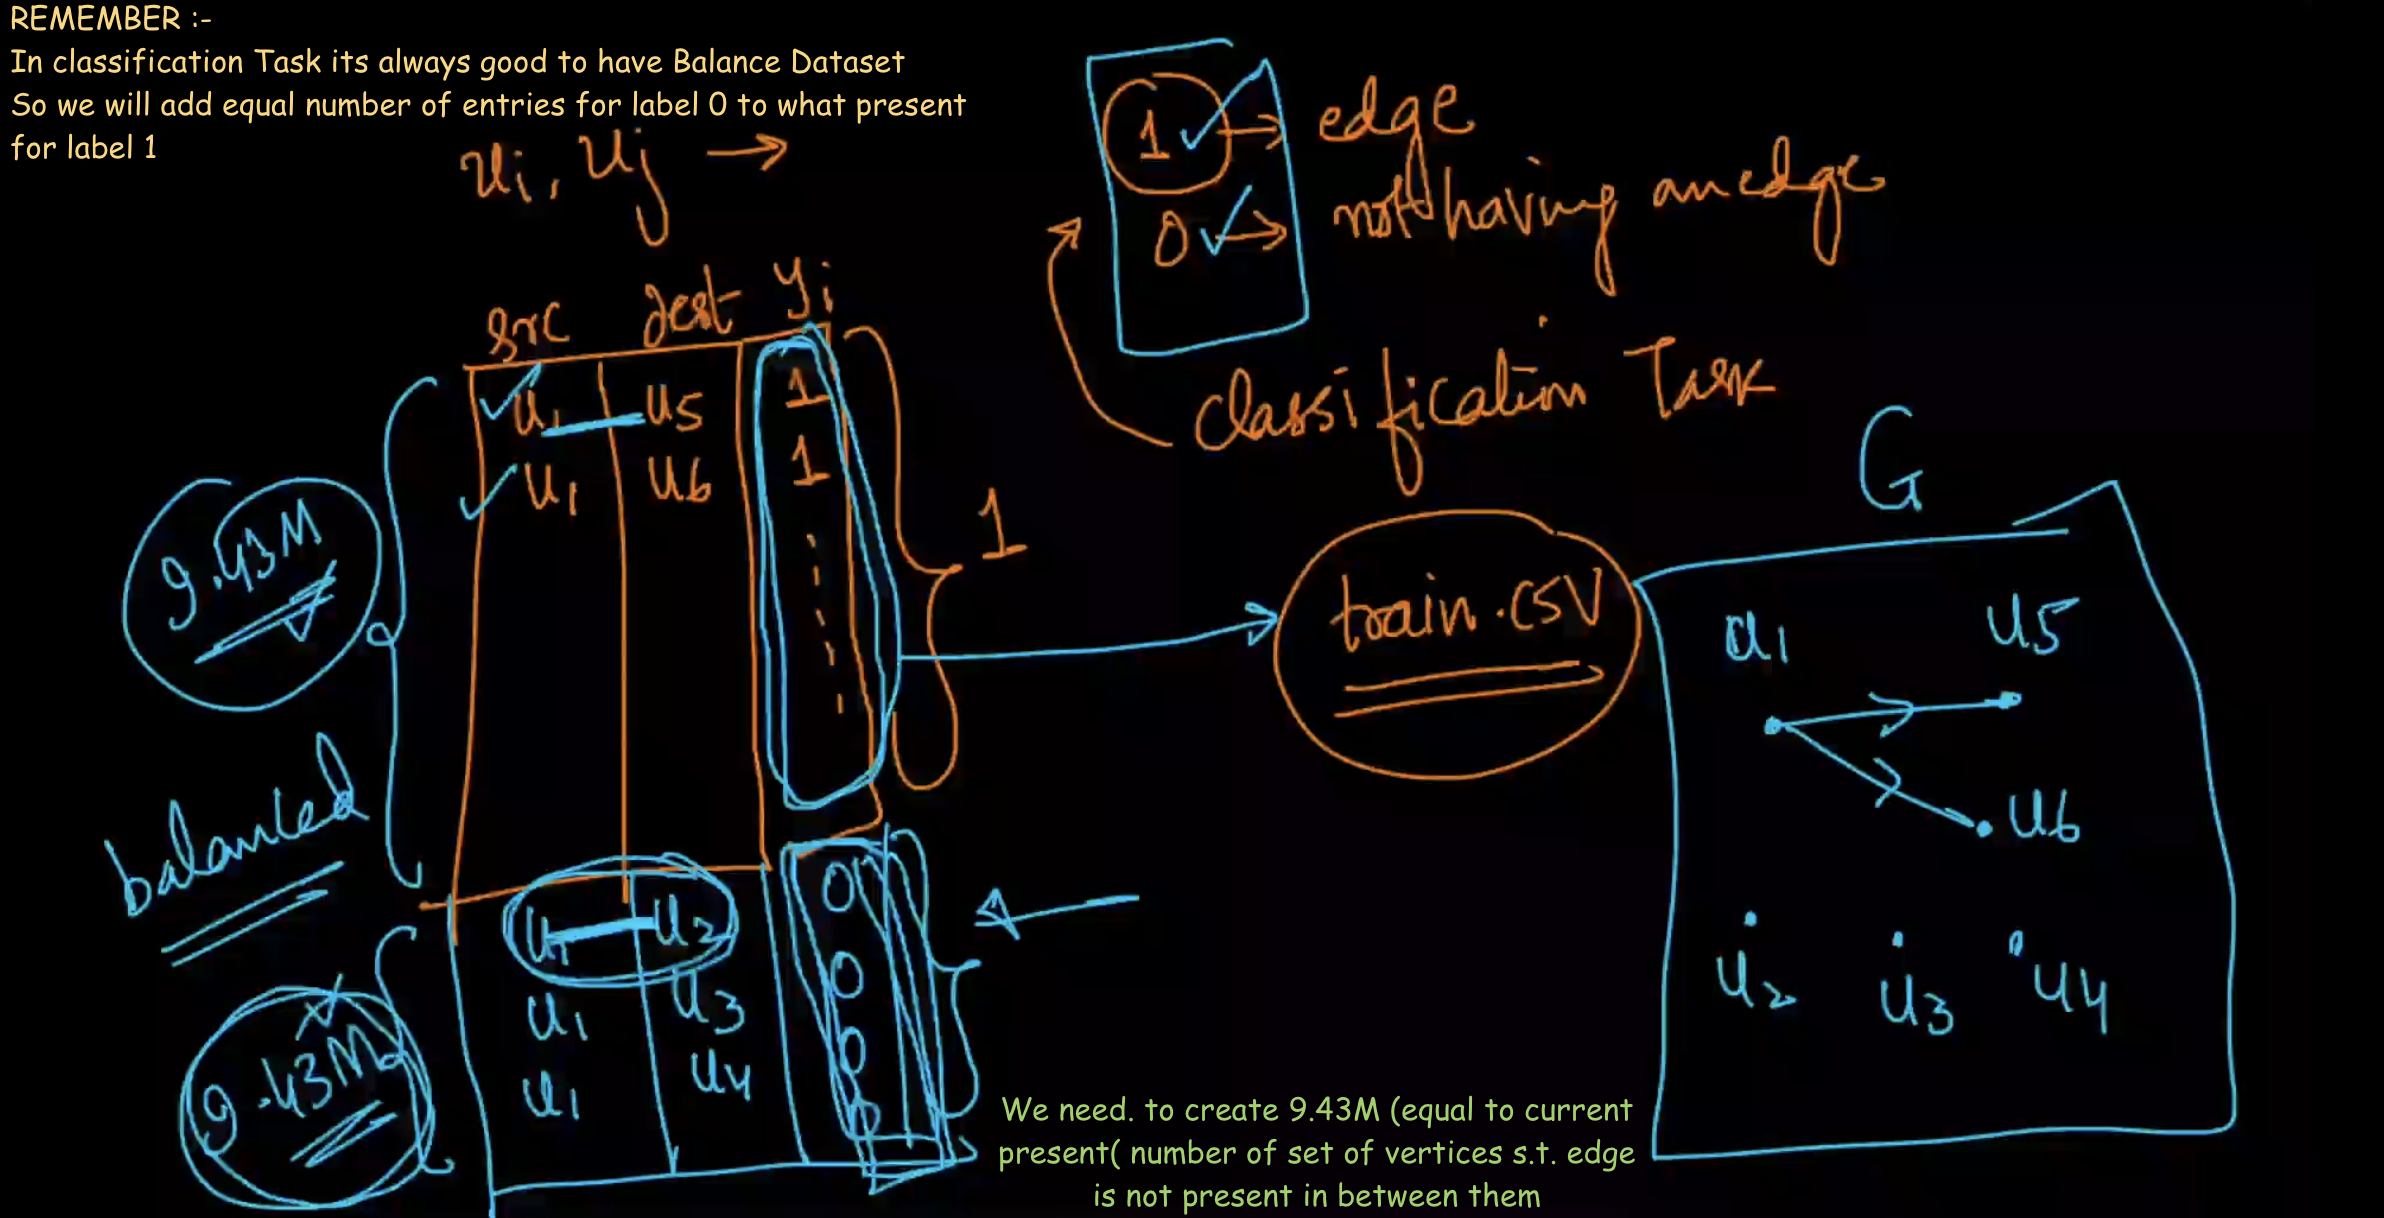 REMEMBER :-
In classification Task its always good to have Balance Dataset
So we will add equal number of entries for label 0 to what present
for label 1
ui, uj →
1 → edge
0 → not having an edge
classification Task
src dest yi
u1 u5 1
u1 u6 1
9.43M
1
train.csv
G
u1 u5
u6
u2 u3 u4
balanced
u1 u2 0
u1 u3 0
u1 u4 0
9.43M
We need. to create 9.43M (equal to current
present( number of set of vertices s.t. edge
is not present in between them